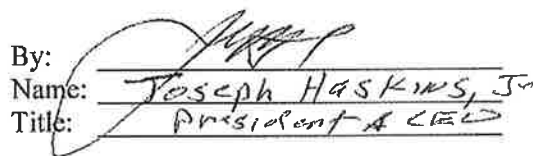 By:
Name: Joseph Haskins, Jr
Title: President & CEO